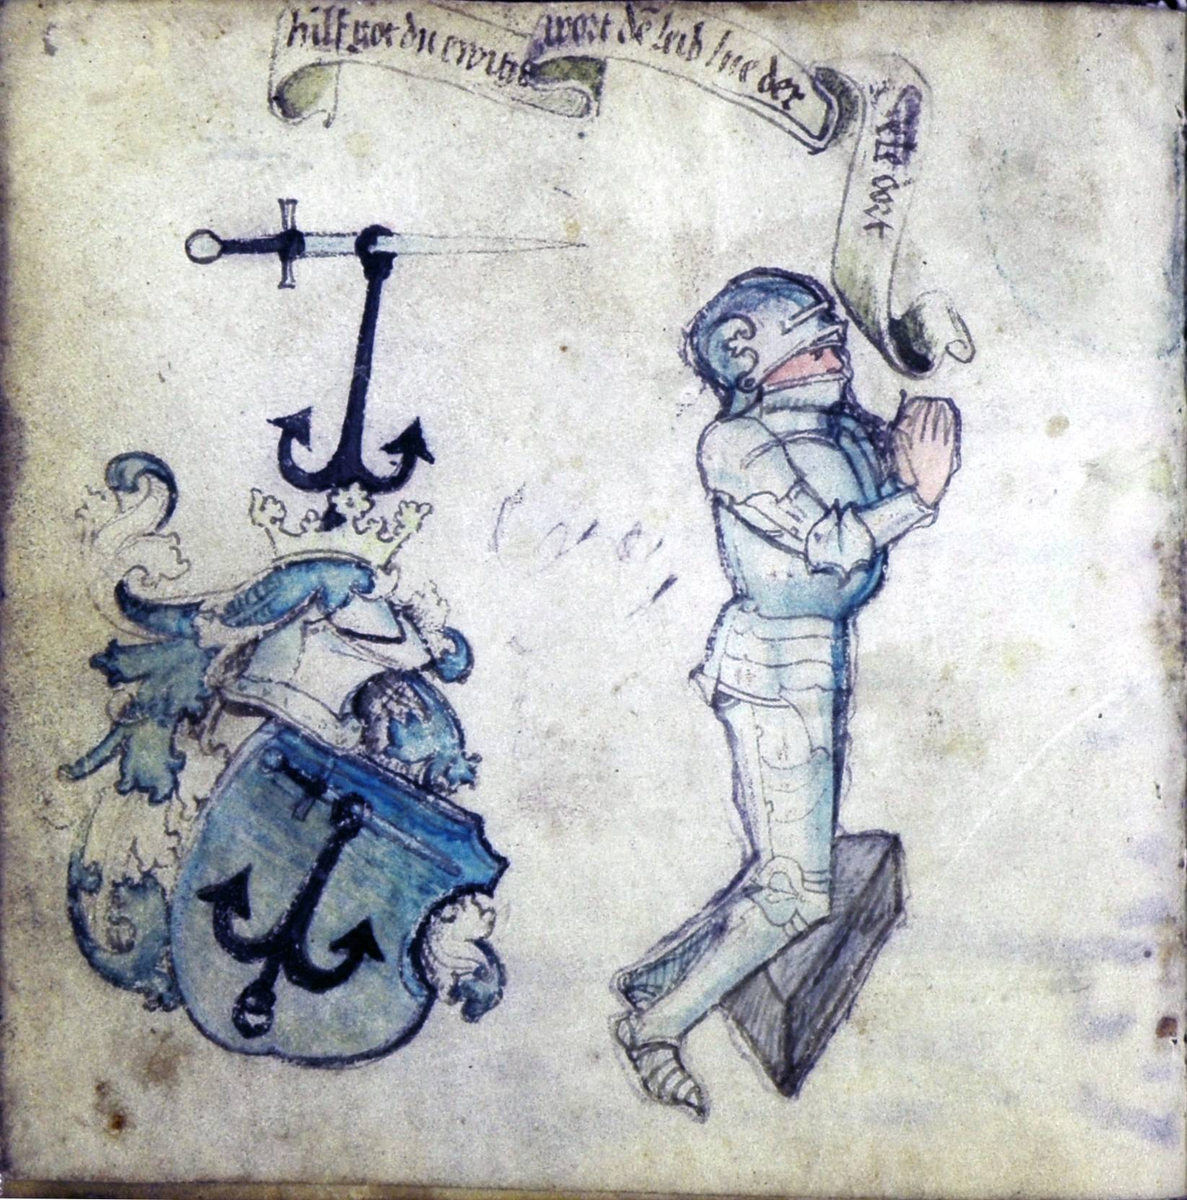 hilf got du ewigs
wort dē leib hie der
sele dort